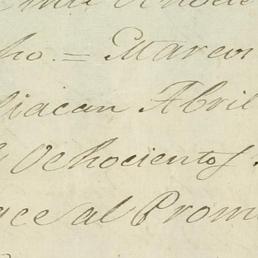 ho. = Marcos
liacan Abril
Ochocientos
ace al Prom